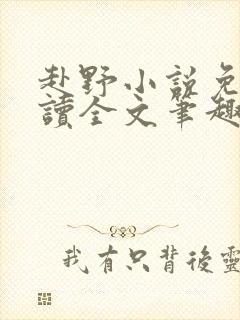 赴野小說免
讀全文筆趣
我有只背後靈